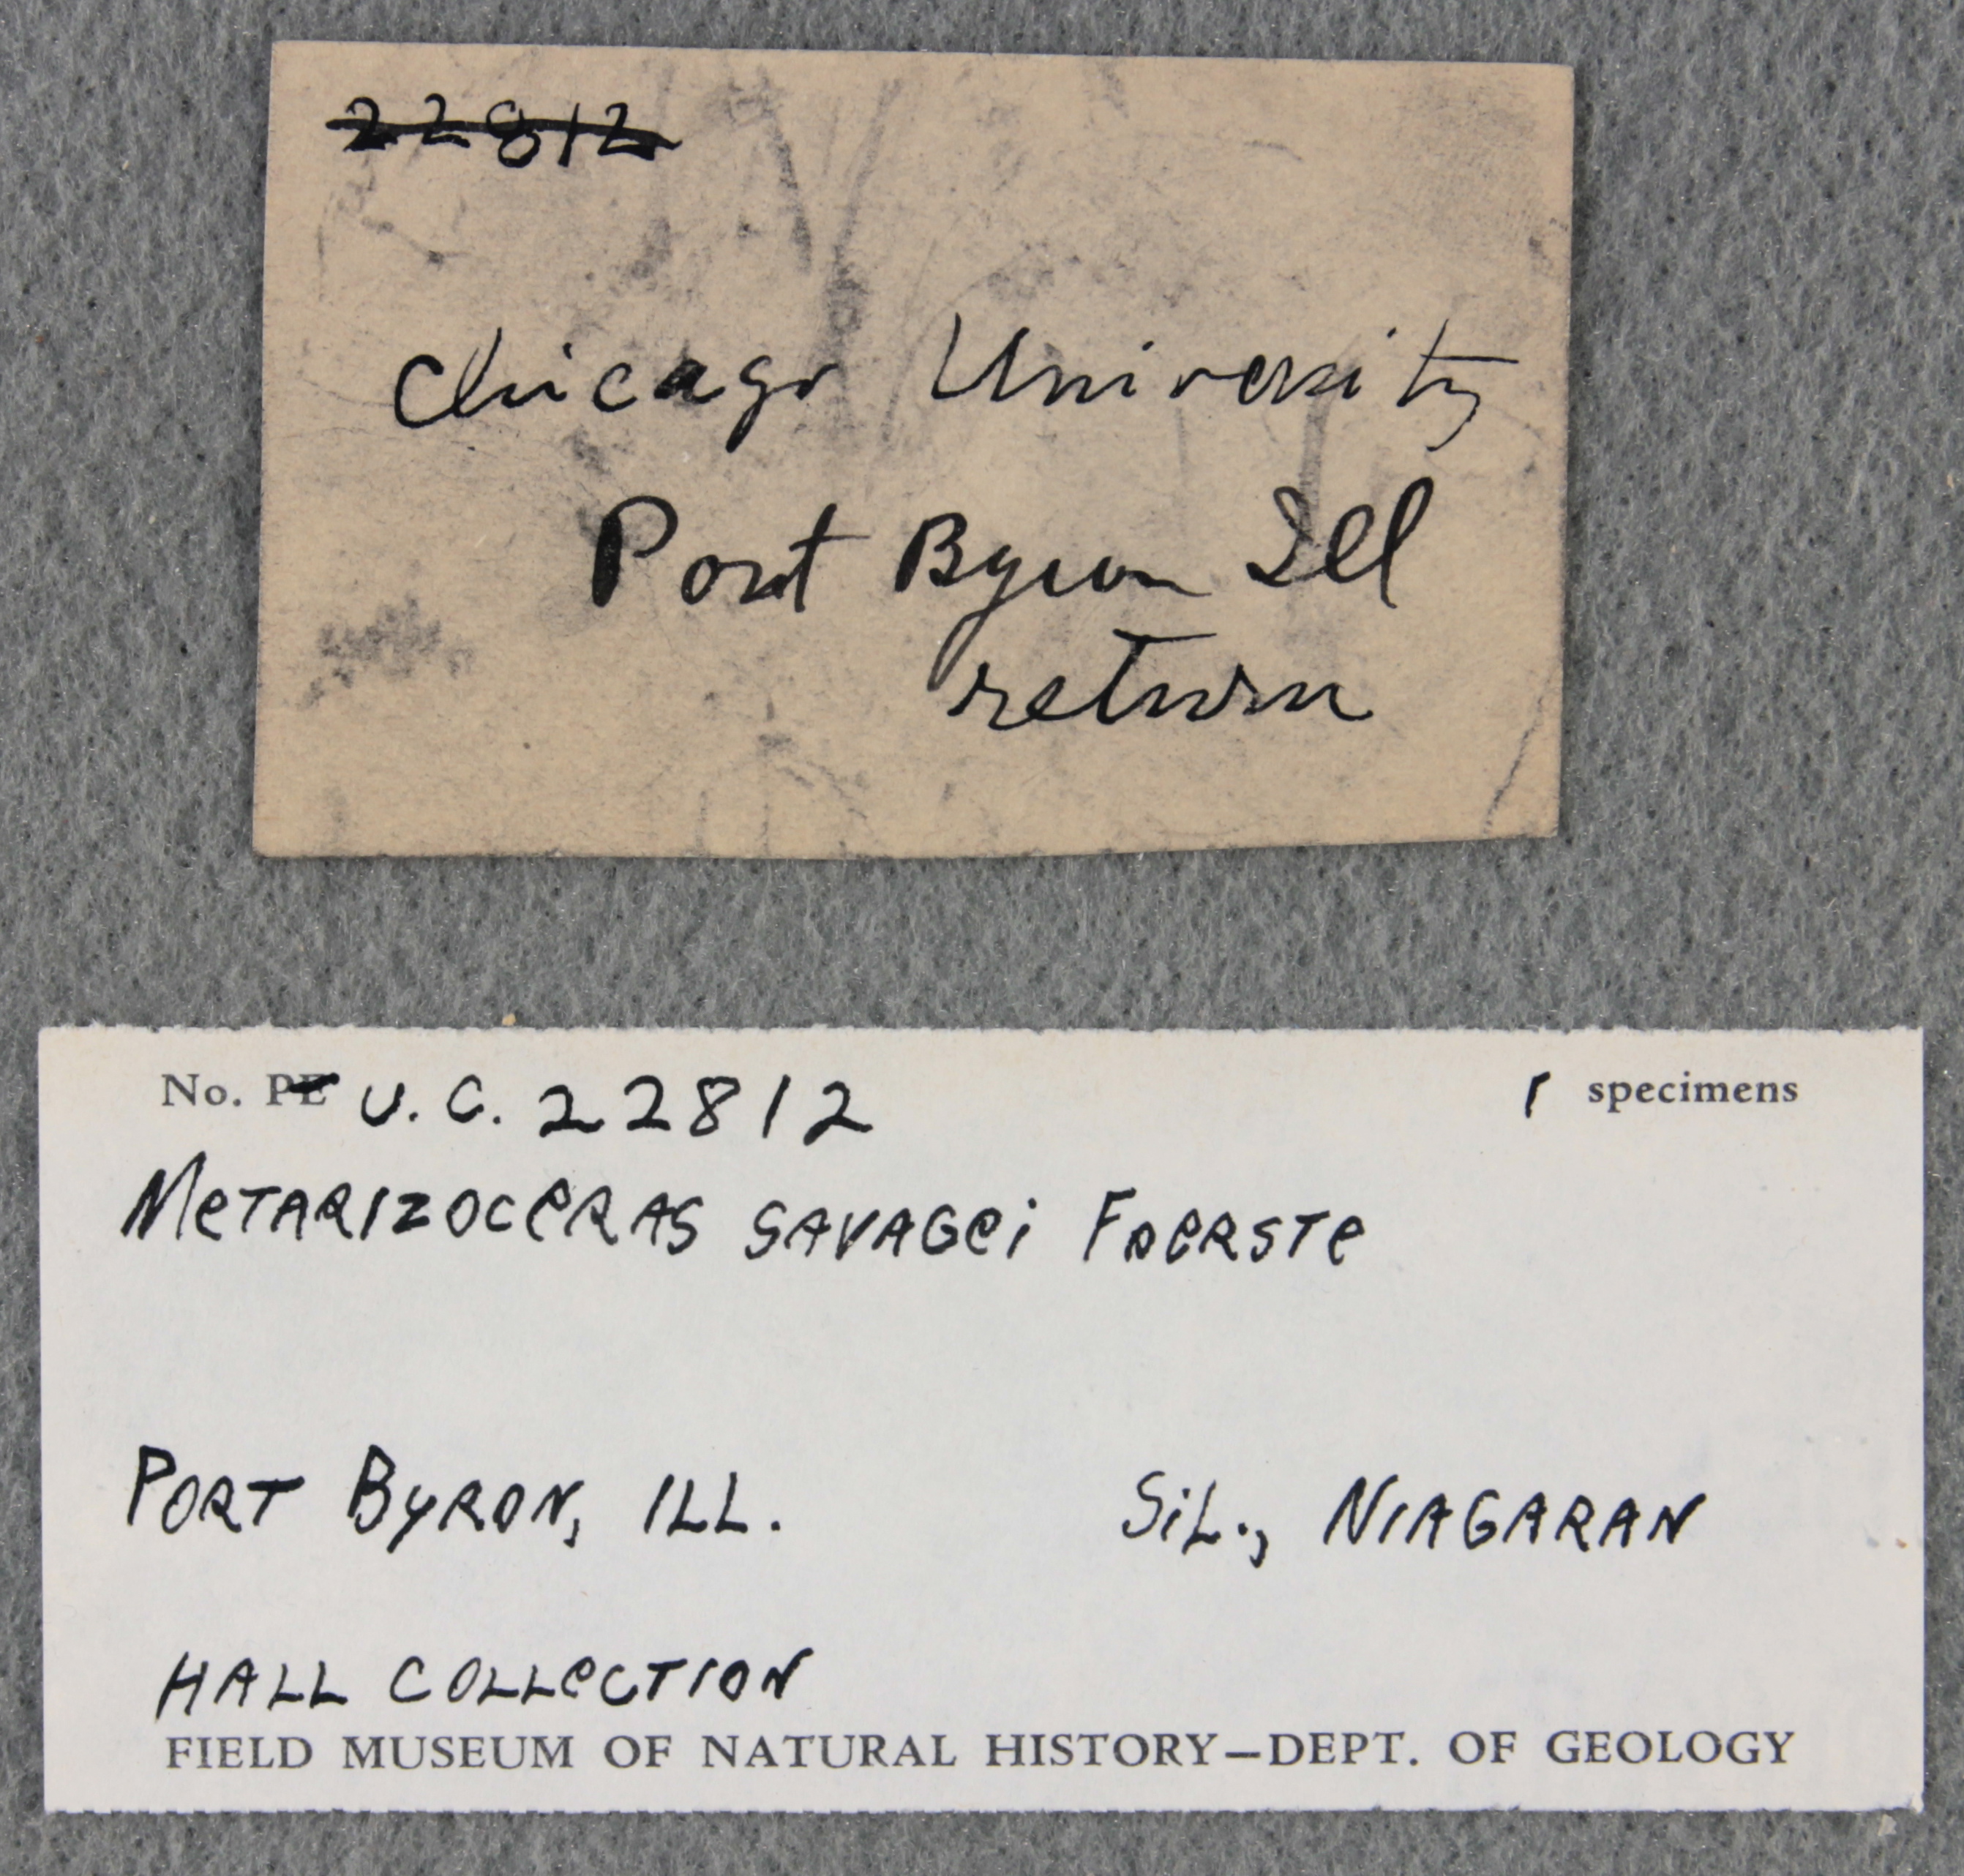 22812
Chicago University
Port Byron Ill
return
No. PE U.C. 22812 1 specimens
METARIZOCERAS SAVAGEI FOERSTE
PORT BYRON, ILL. SIL., NIAGARAN
HALL COLLECTION
FIELD MUSEUM OF NATURAL HISTORY—DEPT. OF GEOLOGY